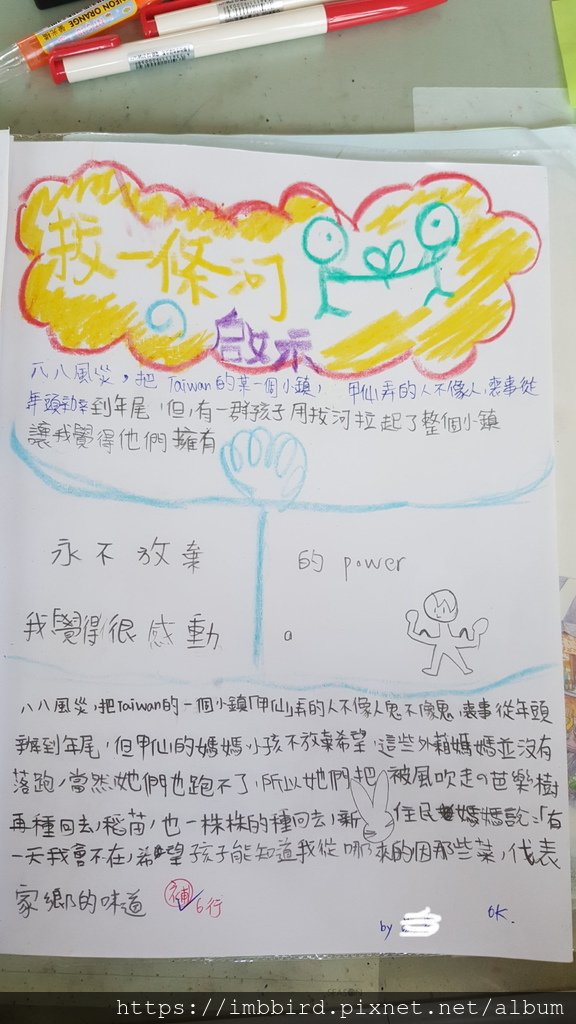 拔一條河
の啟示
八八風災，把Taiwan的某一個小鎮，甲仙弄的人不像人，喪事從
年頭辦到年尾，但，有一群孩子用拔河拉起了整個小鎮
讓我覺得他們擁有
永不放棄 的 power
我覺得很感動
八八風災，把Taiwan的一個小鎮「甲仙」弄的人不像人鬼不像鬼，喪事從年頭
辦到年尾，但甲仙的媽媽小孩不放棄希望，這些外籍媽媽並沒有
落跑，當然她們也跑不了，所以她們把被風吹走の芭樂樹
再種回去，稻苗，也一株株的種回去，新住民媽媽說：「有
一天我會不在，希望孩子能知道我從哪來的因那些菜，代表
家鄉的味道 補 6行
by OK.
https://imbbird.pixnet.net/album